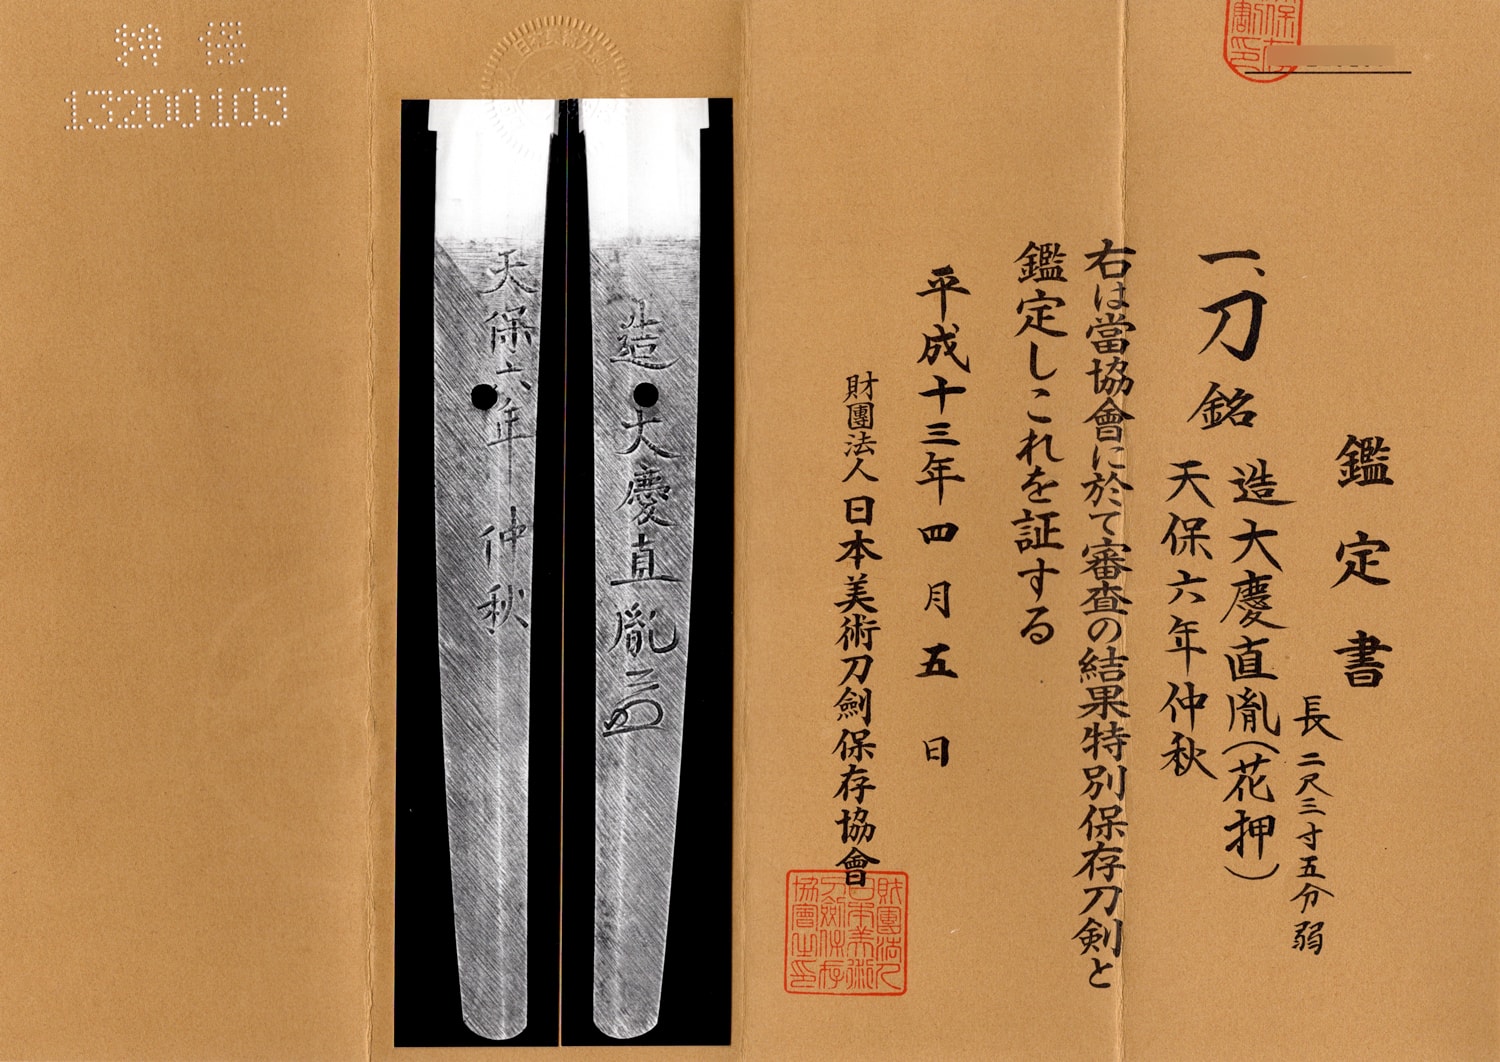 特保
13200103
鑑定書
一、刀 銘 造大慶直胤(花押)
天保六年仲秋
長二尺三寸五分弱
右は當協會に於て審査の結果特別保存刀剣と
鑑定しこれを証する
平成十三年四月五日
財團法人日本美術刀劍保存協會
財團法人
日本美術
刀劍保存
協會之印
造大慶直胤
天保六年仲秋